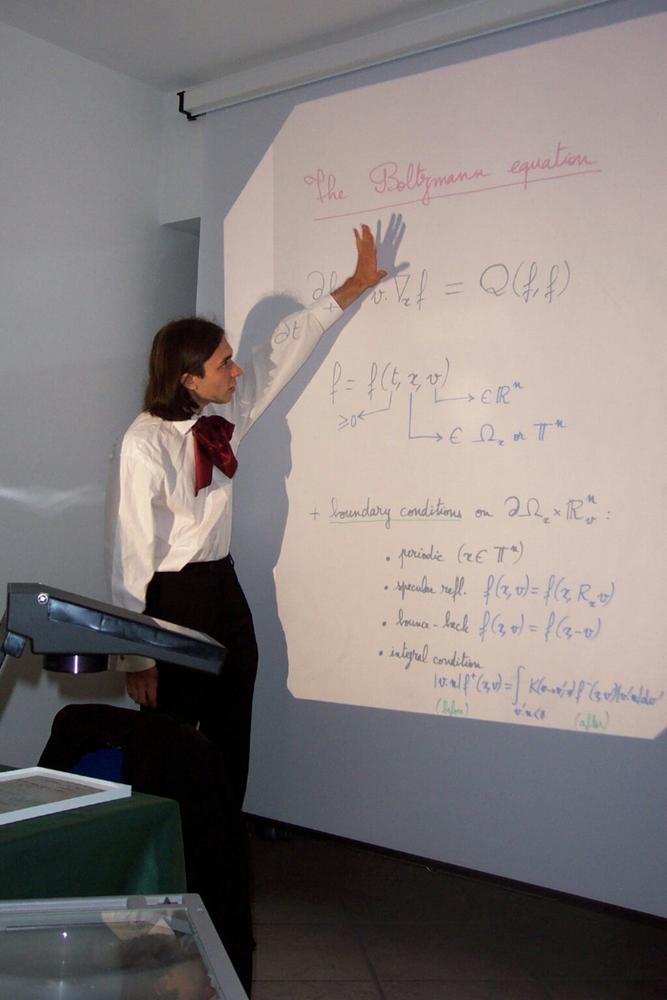 The Boltzmann equation
∂f/∂t + v·∇ₓf = Q(f,f)
f = f(t, x, v)
≥0
∈ ℝⁿ
∈ Ωₓ or 𝕋ⁿ
+ boundary conditions on ∂Ωₓ × ℝⁿᵥ :
• periodic (x ∈ 𝕋ⁿ)
• specular refl. f(x,v) = f(x, Rₓv)
• bounce-back f(x,v) = f(x,-v)
• integral condition
|v·n| f⁺(x,v) = ∫ K(v→v',x) f⁻(x,v')|v'·n|dv'
v'·n<0
(before) (after)